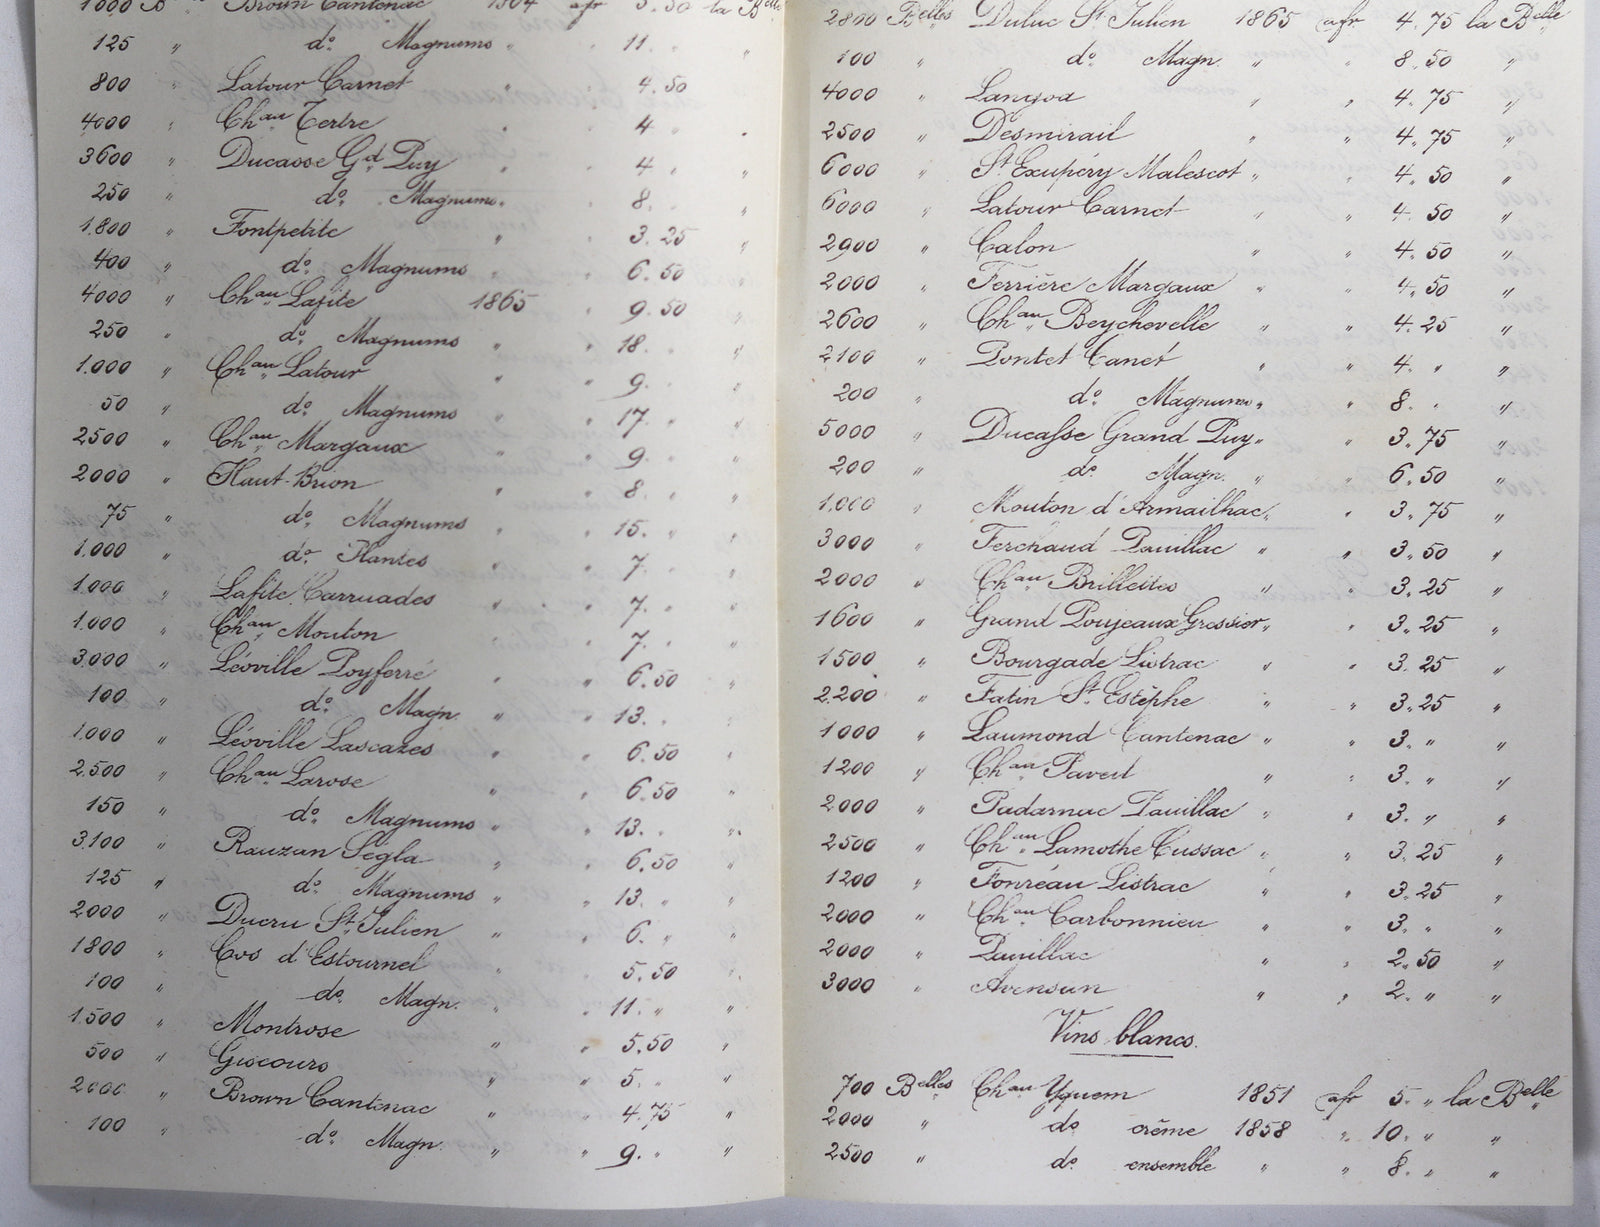 1000 Brown Cantenac 1864 afr 5.50 la Belle
125 " do Magnums " " 11. "
800 " Latour Carnet " " 4.50
4000 " Chau Tertre " " 4 " "
3600 " Ducasse Gd Puy " " 4 "
250 " do Magnums " " 8. "
1.800 " Fontpetite " " 3.25 "
400 " do Magnums " " 6.50 "
4000 " Chau Lafite 1865 " 9.50 "
250 " do Magnums " " 18. " "
1.000 " Chau Latour " " 9. " "
50 " do Magnums " " 17. " "
2500 " Chau Margaux " " 9. " "
2000 " Haut-Brion " " 8. " "
75 " do Magnums " " 15. " "
1.000 " do Plantes " 7. " "
1.000 " Lafite Carruades " " 7. " "
1.000 " Chau Mouton " " 7. " "
3.000 " Léoville Poyferré " " 6.50 "
100 " do Magn. " " 13. " "
1.000 " Léoville Lascazes " " 6.50 "
2.500 " Chau Larose " " 6.50 "
150 " do Magnums " " 13. " "
3.100 " Rauzan Ségla " " 6.50 "
125 " do Magnums " " 13. " "
2000 " Ducru St Julien " " 6. " "
1800 " Cos d'Estournel " " 5.50 "
100 " do Magn. " " 11. " "
1.500 " Montrose " " 5.50 "
500 " Giscours " " 5. " "
2000 " Brown Cantenac " " 4.75 "
100 " do Magn. " " 9. " "
2800 Belles Duluc St Julien 1865 afr 4.75 la Belle
100 " do Magn. " " 8.50 "
4000 " Langoa " " 4.75 "
2500 " Desmirail " " 4.75 "
6000 " St Exupéry Malescot " " 4.50 "
6000 " Latour Carnet " " 4.50 "
2900 " Calon " " 4.50 "
2000 " Ferrière Margaux " " 4.50 "
2600 " Chau Beychevelle " " 4.25 "
2100 " Pontet Canet " " 4. " "
200 " do Magnums " " 8. " "
5000 " Ducasse Grand Puy " " 3.75 "
200 " do Magn. " " 6.50 "
1.000 " Mouton d'Armailhac " " 3.75 "
3000 " Ferchaud Pauillac " " 3.50 "
2000 " Chau Brillettes " " 3.25 "
1600 " Grand Poujeaux Gressier " " 3.25 "
1500 " Bourgade Listrac " " 3.25 "
2.200 " Fatin St Estèphe " " 3.25 "
1000 " Laumond Cantenac " " 3. " "
1200 " Chau Paveil " " 3. " "
2000 " Padarnac Pauillac " " 3. " "
2500 " Chau Lamothe Cussac " " 3.25 "
1200 " Fonréau Listrac " " 3.25 "
2000 " Chau Carbonnieu " " 3. " "
2000 " Pauillac " " 2.50 "
3000 " Avensan " " 2. " "
Vins blancs.
700 Belles Chau Yquem 1851 afr 5. " la Belle
2000 " do crême 1858 " 10. " "
2500 " do ensemble " " 8. " "